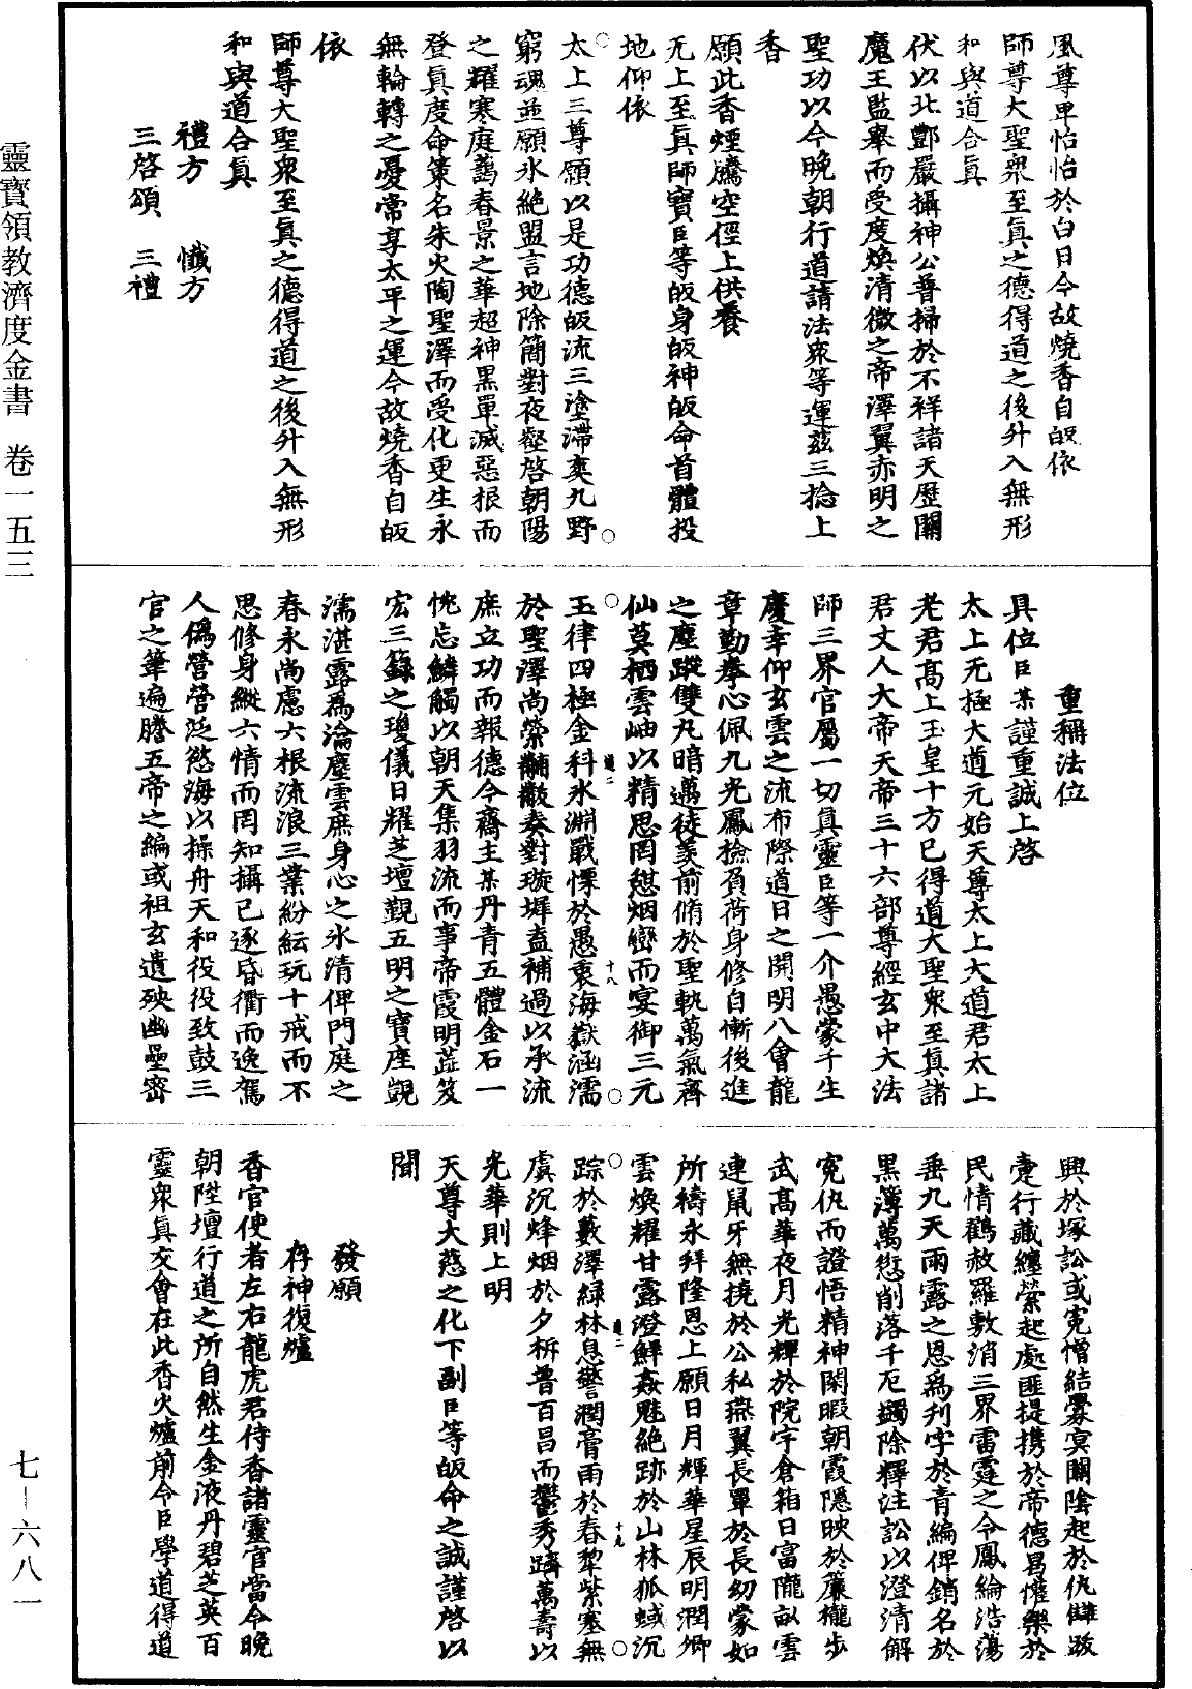 凰尊卑怡怡於白日今故燒香自皈依
師尊大聖衆至眞之德得道之後升入無形
和與道合眞
伏以北酆嚴攝神公普掃於不祥諸天歷關
魔王監舉而受度煥清微之帝澤翼赤明之
聖功以今晚朝行道請法衆等運茲三捻上
香
願此香煙騰空徑上供養
无上至眞師寶臣等皈身皈神皈命首體投
地仰依
太上三尊願以是功德皈流三塗滯爽九野
窮魂並願氷絕盟言地除簡對夜壑啓朝陽
之耀寒庭藹春景之華超神黑單滅惡根而
登眞度命策名朱火陶聖澤而受化更生永
無輪轉之憂常享太平之運今故燒香自皈
依
師尊大聖衆至眞之德得道之後升入無形
和與道合眞
禮方　懺方
三啓頌　三禮
重稱法位
具位臣某謹重誠上啓
太上无極大道元始天尊太上大道君太上
老君高上玉皇十方已得道大聖衆至眞諸
君丈人大帝天帝三十六部尊經玄中大法
師三界官屬一切眞靈臣等一介愚蒙千生
慶幸仰玄雲之流布際道日之開明八會龍
章勤拳心佩九光鳳撿負荷身修自慚後進
之塵蹤雙丸暗邁徒羨前脩於聖軌萬氣齊
仙莫栖雲岫以精思罔愆烟巒而宴御三元
玉律四極金科氷淵戰慄於愚衷海嶽涵濡
於聖澤尚縈黼黻奏對璇墀盍補過以承流
庶立功而報德今齋主某丹青五體金石一
忱忘鱗觸以朝天集羽流而事帝霞明蕋笈
宏三籙之瓊儀日耀芝壇覲五明之寶座覬
濡湛露爲淪塵雲庶身心之氷清俾門庭之
春永尚慮六根流浪三業紛紜玩十戒而不
思修身縱六情而罔知攝已逐昏衢而逸駕
人僞營營泛慾海以操舟天和役役致鼓三
官之筆遍謄五帝之編或祖玄遺殃幽壘密
興於塚訟或寃憎結釁冥關陰起於仇讎跋
疐行藏纏縈起處匪提携於帝德曷懽樂於
民情鶴赦羅敷消三界雷霆之令鳳綸浩蕩
垂九天雨露之恩爲刋字於青編俾銷名於
黑簿萬愆削落千厄蠲除釋注訟以澄清解
寃仇而證悟精神閑暇朝霞隱映於簾櫳步
武高華夜月光輝於院宇倉箱日富隴畝雲
連鼠牙無撓於公私燕翼長單於長幼蒙如
所禱永拜隆恩上願日月輝華星辰明潤卿
雲煥耀甘露澄鮮姦魃絕跡於山林狐蜮沉
踪於藪澤綠林息警潤膏雨於春犂紫塞無
虞沉烽烟於夕柝普百昌而鬱秀躋萬壽以
光華則上明
天尊大慈之化下副臣等皈命之誠謹啓以
聞
發願
存神復爐
香官使者左右龍虎君侍香諸靈官當令晚
朝陞壇行道之所自然生金液丹碧芝英百
靈衆眞交會在此香火爐前令臣學道得道
靈寶領教濟度金書　卷一五三
七—六八一